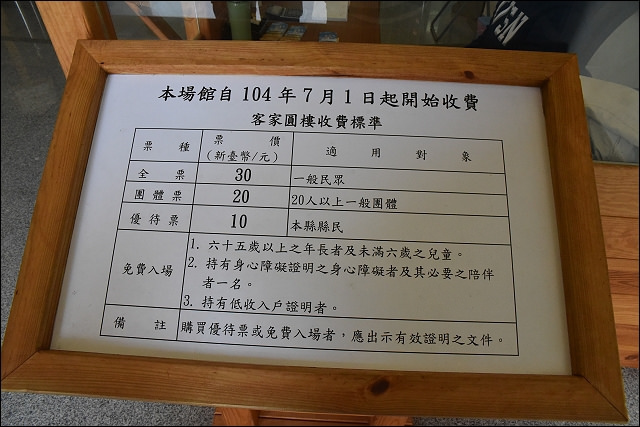 本場館自 104 年 7 月 1 日起開始收費
客家圓樓收費標準
票種 票價 (新臺幣/元) 適用對象
全票 30 一般民眾
團體票 20 20人以上一般團體
優待票 10 本縣縣民
免費入場
1. 六十五歲以上之年長者及未滿六歲之兒童。
2. 持有身心障礙證明之身心障礙者及其必要之陪伴
者一名。
3. 持有低收入戶證明者。
備註 購買優待票或免費入場者,應出示有效證明之文件。